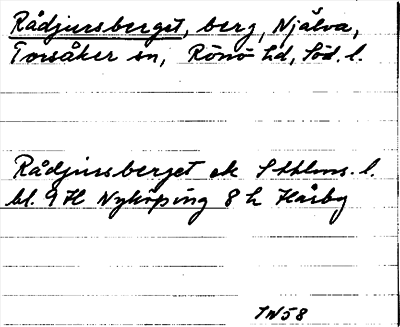 Rådjursberget, berg, Njälva,
Torsåker sn, Rönö hd, Söd. l.
Rådjursberget ek Sthlms. l.
bl. 9 H Nyköping 8 h Håsby
IN58